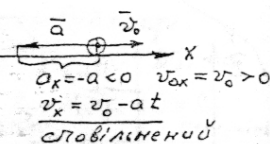 a̅ v̅₀
x
aₓ = -a < 0 v₀ₓ = v₀ > 0
vₓ = v₀ - at
сповільнений